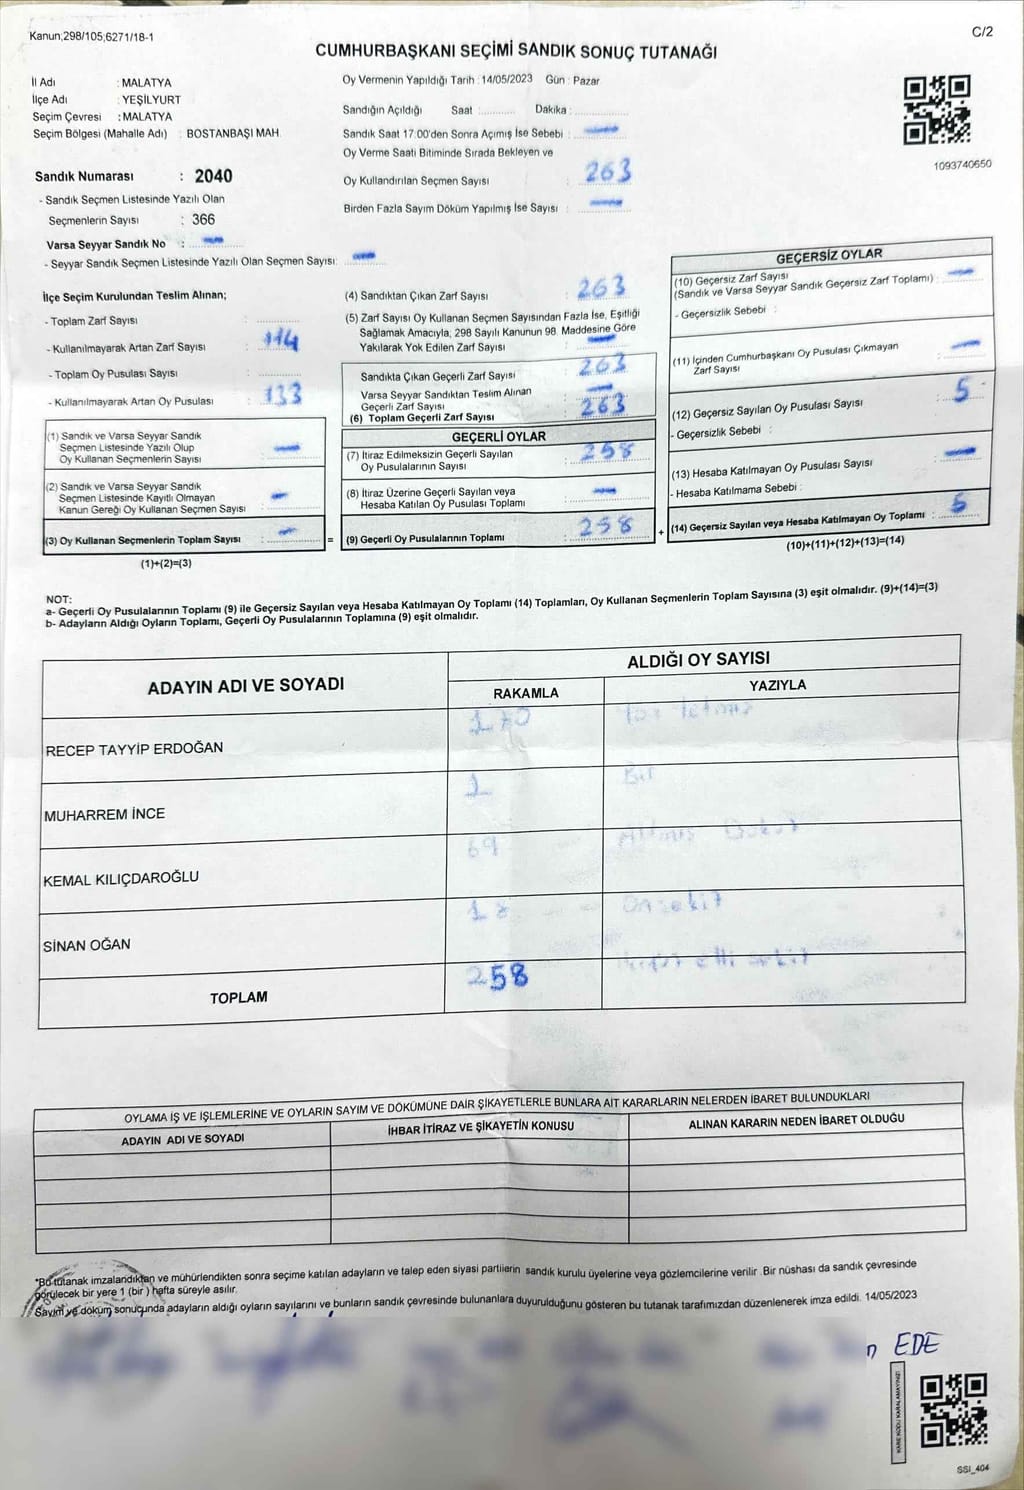 Kanun;298/105;6271/18-1
C/2
CUMHURBAŞKANI SEÇİMİ SANDIK SONUÇ TUTANAĞI
İl Adı : MALATYA
İlçe Adı : YEŞİLYURT
Seçim Çevresi : MALATYA
Seçim Bölgesi (Mahalle Adı) : BOSTANBAŞI MAH.
Sandık Numarası : 2040
- Sandık Seçmen Listesinde Yazılı Olan
Seçmenlerin Sayısı : 366
Varsa Seyyar Sandık No :
- Seyyar Sandık Seçmen Listesinde Yazılı Olan Seçmen Sayısı:
Oy Vermenin Yapıldığı Tarih : 14/05/2023 Gün : Pazar
Sandığın Açıldığı Saat :............ Dakika :................
Sandık Saat 17:00'den Sonra Açımış İse Sebebi :
Oy Verme Saati Bitiminde Sırada Bekleyen ve
Oy Kullandırılan Seçmen Sayısı : 263
Birden Fazla Sayım Döküm Yapılmış İse Sayısı :
1093740650
İlçe Seçim Kurulundan Teslim Alınan;
- Toplam Zarf Sayısı :
- Kullanılmayarak Artan Zarf Sayısı : 114
- Toplam Oy Pusulası Sayısı :
- Kullanılmayarak Artan Oy Pusulası : 133
(1) Sandık ve Varsa Seyyar Sandık
Seçmen Listesinde Yazılı Olup
Oy Kullanan Seçmenlerin Sayısı :
(2) Sandık ve Varsa Seyyar Sandık
Seçmen Listesinde Kayıtlı Olmayan
Kanun Gereği Oy Kullanan Seçmen Sayısı :
(3) Oy Kullanan Seçmenlerin Toplam Sayısı :
(1)+(2)=(3)
=
(4) Sandıktan Çıkan Zarf Sayısı : 263
(5) Zarf Sayısı Oy Kullanan Seçmen Sayısından Fazla İse, Eşitliği
Sağlamak Amacıyla, 298 Sayılı Kanunun 98. Maddesine Göre
Yakılarak Yok Edilen Zarf Sayısı :
Sandıkta Çıkan Geçerli Zarf Sayısı : 263
Varsa Seyyar Sandıktan Teslim Alınan
Geçerli Zarf Sayısı :
(6) Toplam Geçerli Zarf Sayısı : 263
GEÇERLİ OYLAR
(7) İtiraz Edilmeksizin Geçerli Sayılan
Oy Pusulalarının Sayısı : 258
(8) İtiraz Üzerine Geçerli Sayılan veya
Hesaba Katılan Oy Pusulası Toplamı :
(9) Geçerli Oy Pusulalarının Toplamı : 258
+
GEÇERSİZ OYLAR
(10) Geçersiz Zarf Sayısı
(Sandık ve Varsa Seyyar Sandık Geçersiz Zarf Toplamı) :
- Geçersizlik Sebebi :
(11) İçinden Cumhurbaşkanı Oy Pusulası Çıkmayan
Zarf Sayısı :
(12) Geçersiz Sayılan Oy Pusulası Sayısı : 5
- Geçersizlik Sebebi :
(13) Hesaba Katılmayan Oy Pusulası Sayısı :
- Hesaba Katılmama Sebebi :
(14) Geçersiz Sayılan veya Hesaba Katılmayan Oy Toplamı : 5
(10)+(11)+(12)+(13)=(14)
NOT:
a- Geçerli Oy Pusulalarının Toplamı (9) ile Geçersiz Sayılan veya Hesaba Katılmayan Oy Toplamı (14) Toplamları, Oy Kullanan Seçmenlerin Toplam Sayısına (3) eşit olmalıdır. (9)+(14)=(3)
b- Adayların Aldığı Oyların Toplamı, Geçerli Oy Pusulalarının Toplamına (9) eşit olmalıdır.
ADAYIN ADI VE SOYADI
ALDIĞI OY SAYISI
RAKAMLA YAZIYLA
RECEP TAYYİP ERDOĞAN 170 Yüz Yetmiş
MUHARREM İNCE 1 Bir
KEMAL KILIÇDAROĞLU 69 Altmış Dokuz
SİNAN OĞAN 18 Onsekiz
TOPLAM 258 ikiyüz elli sekiz
OYLAMA İŞ VE İŞLEMLERİNE VE OYLARIN SAYIM VE DÖKÜMÜNE DAİR ŞİKAYETLERLE BUNLARA AİT KARARLARIN NELERDEN İBARET BULUNDUKLARI
ADAYIN ADI VE SOYADI İHBAR İTİRAZ VE ŞİKAYETİN KONUSU ALINAN KARARIN NEDEN İBARET OLDUĞU
*Bu tutanak imzalandıktan ve mühürlendikten sonra seçime katılan adayların ve talep eden siyasi partilerin sandık kurulu üyelerine veya gözlemcilerine verilir .Bir nüshası da sandık çevresinde
görülecek bir yere 1 (bir ) hafta süreyle asılır.
Sayım ve döküm sonucunda adayların aldığı oyların sayılarını ve bunların sandık çevresinde bulunanlara duyurulduğunu gösteren bu tutanak tarafımızdan düzenlenerek imza edildi. 14/05/2023
EDE
KARE KODU KARALAMAYINIZ!
SSI_404